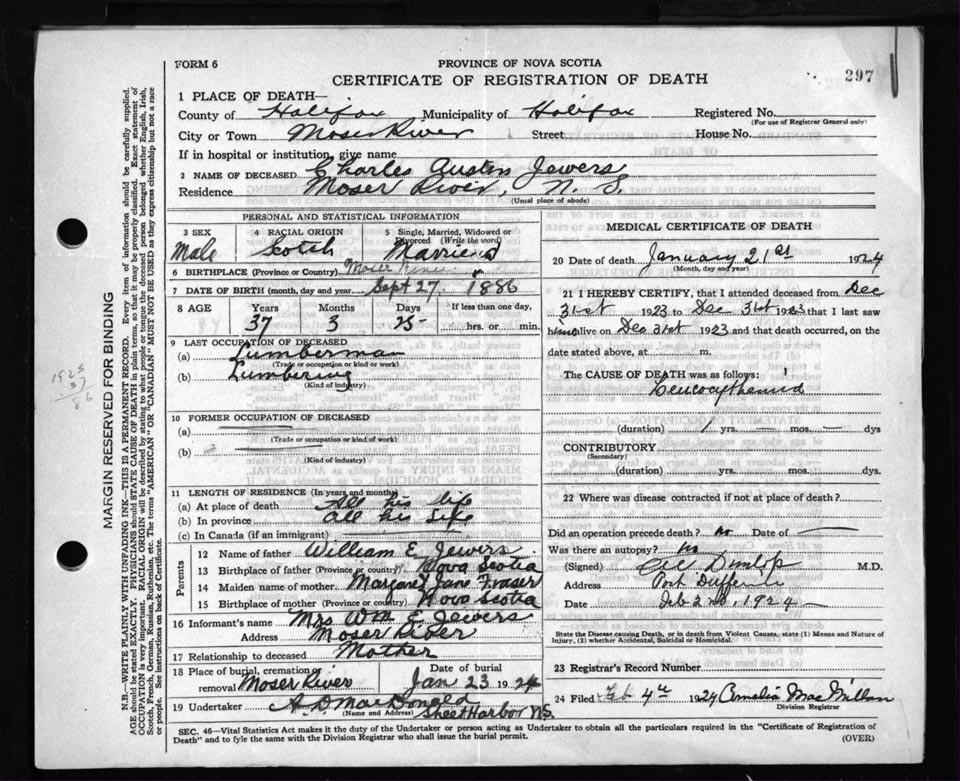 FORM 6
PROVINCE OF NOVA SCOTIA
CERTIFICATE OF REGISTRATION OF DEATH
297
1 PLACE OF DEATH—
County of Halifax Municipality of Halifax Registered No.
(For use of Registrar General only)
City or Town Moser River Street House No.
If in hospital or institution, give name
2 NAME OF DECEASED Charles Austen Jewers
Residence Moser River, N. S.
(Usual place of abode)
PERSONAL AND STATISTICAL INFORMATION
3 SEX 4 RACIAL ORIGIN 5 Single, Married, Widowed or Divorced (Write the word)
Male Scotch Married
6 BIRTHPLACE (Province or Country) Moser River
7 DATE OF BIRTH (month, day and year) Sept 27, 1886
8 AGE Years Months Days If less than one day,
37 3 25 hrs. or min.
9 LAST OCCUPATION OF DECEASED
(a) Lumberman
(Trade or occupation or kind of work)
(b) Lumbering
(Kind of industry)
10 FORMER OCCUPATION OF DECEASED
(a)
(Trade or occupation or kind of work)
(b)
(Kind of industry)
11 LENGTH OF RESIDENCE (In years and months)
(a) At place of death All his life
(b) In province all his life
(c) In Canada (if an immigrant)
Parents
12 Name of father William E Jewers
13 Birthplace of father (Province or country) Nova Scotia
14 Maiden name of mother Margaret Jane Fraser
15 Birthplace of mother (Province or country) Nova Scotia
16 Informant's name Mrs Wm E. Jewers
Address Moser River
17 Relationship to deceased Mother
18 Place of burial, cremation or removal Moser River Date of burial Jan 23 1924
19 Undertaker A. D. MacDonald
(Name and Address) Sheet Harbor N.S.
MEDICAL CERTIFICATE OF DEATH
20 Date of death January 21st 1924
(Month, day and year)
21 I HEREBY CERTIFY, that I attended deceased from Dec
31st 1923 to Dec 31st 1923 that I last saw
him alive on Dec 31st 1923 and that death occurred, on the
date stated above, at m.
The CAUSE OF DEATH was as follows:
(duration) 1 yrs. — mos. — dys
CONTRIBUTORY
(Secondary)
(duration) yrs. mos. dys.
22 Where was disease contracted if not at place of death?
Did an operation precede death? No Date of —
Was there an autopsy? No
(Signed) Dunlop M.D.
Address Port Dufferin
Date Feb 2nd, 1924
State the Disease causing Death, or in death from Violent Causes, state (1) Means and Nature of
Injury, (2) whether Accidental, Suicidal or Homicidal.
23 Registrar's Record Number
24 Filed Feb 4th 1924 Amelia MacMillan
Division Registrar
SEC. 46—Vital Statistics Act makes it the duty of the Undertaker or person acting as Undertaker to obtain all the particulars required in the "Certificate of Registration of
Death" and to fyle the same with the Division Registrar who shall issue the burial permit. (OVER)
MARGIN RESERVED FOR BINDING
N.B.—WRITE PLAINLY, WITH UNFADING INK—THIS IS A PERMANENT RECORD. Every item of information should be carefully supplied.
AGE should be stated EXACTLY. PHYSICIANS should state CAUSE OF DEATH in plain terms, so that it may be properly classified. Exact statement of
OCCUPATION is very important. RACIAL ORIGIN will be described by stating to what people or tongue the deceased person belonged whether English, Irish,
Scotch, French, German, Russian, Ruthenian, etc. The terms "AMERICAN" OR "CANADIAN" MUST NOT BE USED as they express citizenship but not a race
or people. See instructions on back of Certificate.
1923
37
86